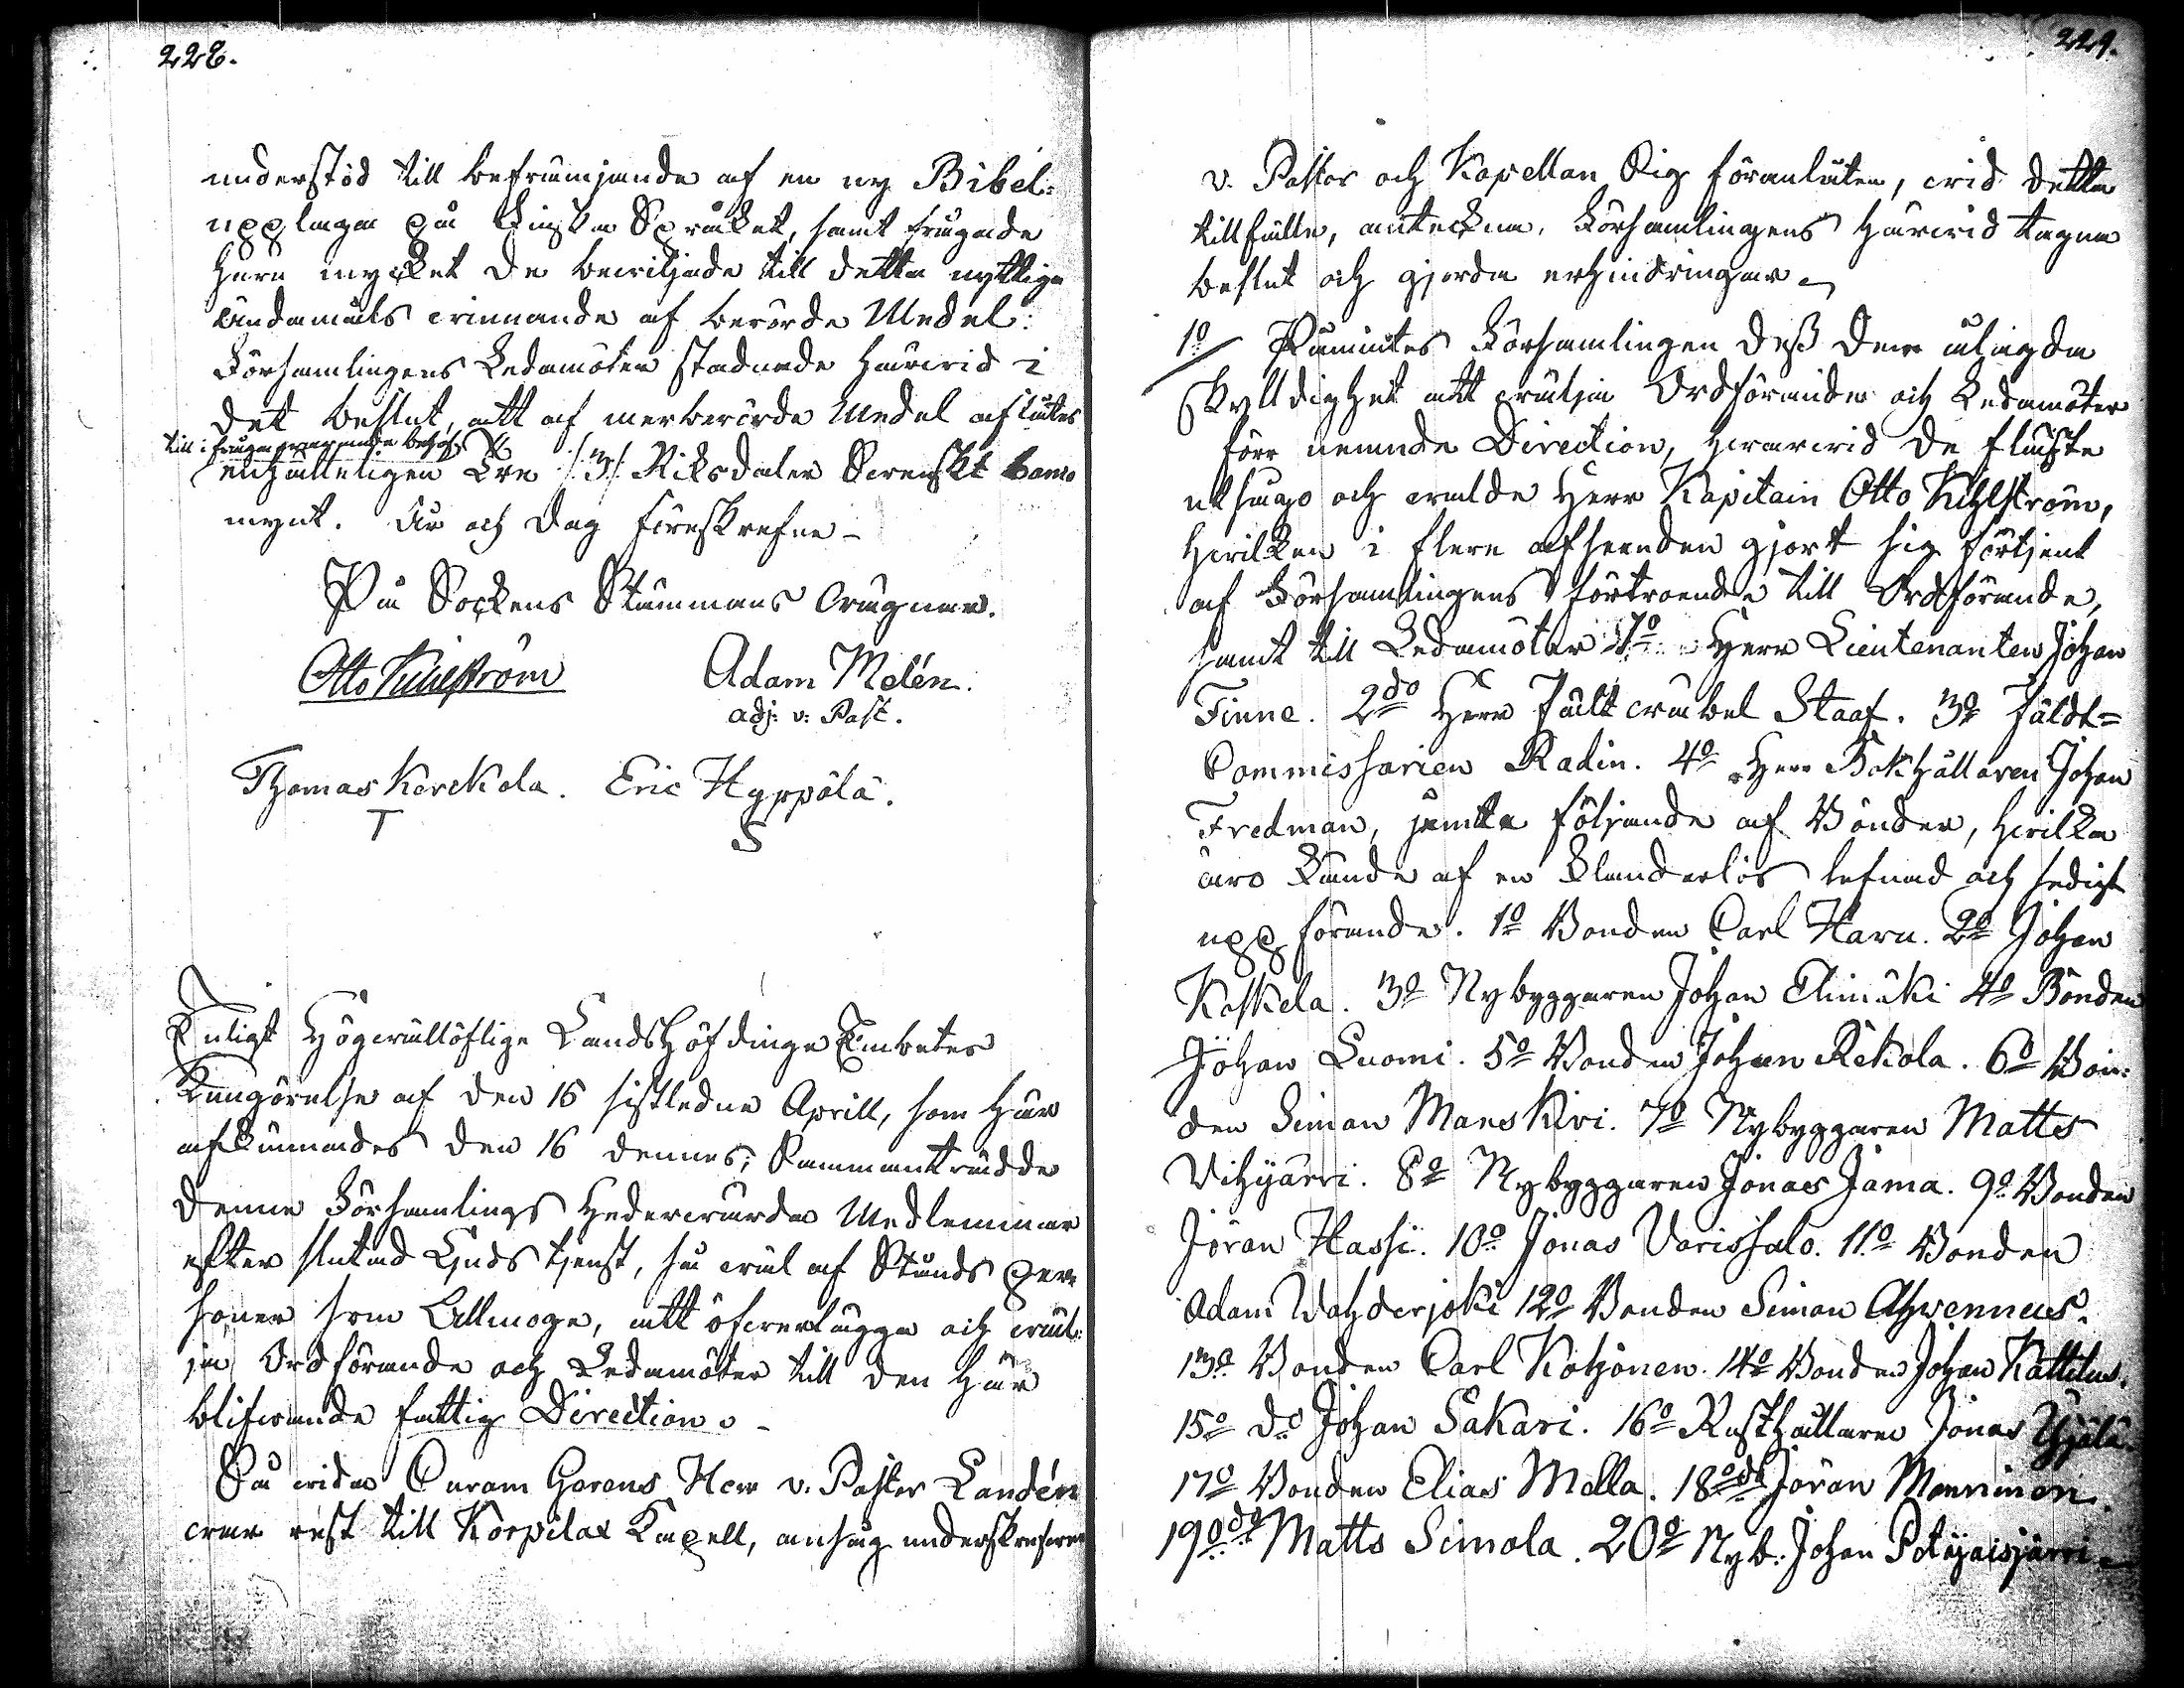 228.
understöd till befrämjande af en ny Bibel-
upplaga på Finska Språket, samt frågade
huru mycket de beviljade till detta nyttiga
ändamåls vinnande af berörde Medel:
Församlingens Ledamöter stadnade härvid i
det beslut, att af merberörde Medel aflåtes
till i fråga varande behof
enhälleligen Tre /:3:/ Riksdaler Svenskt banco
mynt. År och dag föreskrefne –
På Sockens Stämmans vägnar.
Otto Kuhlström Adam Melén.
adj. v: Past.
Thomas Kerckola. Eric Hyppölä.
T S
Enligt Högvällöflige Landshöfdinge Embetes
Kungörelse af den 16 sistledne Aprill, som här
afkunnades den 16 dennes; Sammanträdde
denne Församlings Hedervarda Medlemmar
efter slutad Gudstjenst, så väl af Stånds per-
soner som Allmoge, att öfverlägga och väl-
ja Ordförande och Ledamöter till den här
blifvande fattig Direction. –
Då vidare Curam Gerens Herr v. Pastor Landén
var rest till Korpilax Kapell, ansåg underskrefven
229.
v. Pastor och Kapellan Sig föranlåten, vid detta
tillfälle, anteckna, Församlingens härvid tagna
beslut och gjorda erhindringar –
1o/ Påmintes Församlingen dess dem ålagda
skylldighet att välja Ordförande och Ledamöter
förr nemnde Direction, hvarvid de fläste
utsågo och valde Herr Kapitain Otto Kuhlström,
hvilken i flere afseenden gjort sig förtjent
af Församlingens förtroende till Ordförande,
samt till Ledamöter 1o Herr Lieutenanten Johan
Finne. 2do Herr Fältväbel Staaf. 3o Fäldt=
Commissarien Radin. 4o Herr Bokhållaren Johan
Fredman, jemte följande af Bönder, hvilka
äro kände af en klanderlös lefnad och sedigt
uppförande. 1o Bonden Carl Haru. 2o Johan
Koskela. 3o Nybyggaren Johan Elimäki 4o Bonden
Johan Luomi. 5o Bonden Johan Rekola. 6o Bon-
den Simon Manskivi. 7o Nybyggaren Matts
Vihijärvi. 8o Nybyggaren Jonas Jama. 9o Bonden
Jöran Hassi. 10o Jonas Varissalo. 11o Bonden
Adam Wahderjoki 12o Bonden Simon Ahvenneus.
13o Bonden Carl Kohjonen. 14o Bonden Johan Kattilus.
15o do Johan Sakari. 16o Rusthållaren Jonas Yijälä.
17o Bonden Elias Mella. 18o do Jöran Manninen.
19o do Matts Simola. 20o Nyb. Johan Potijaisjärvi –